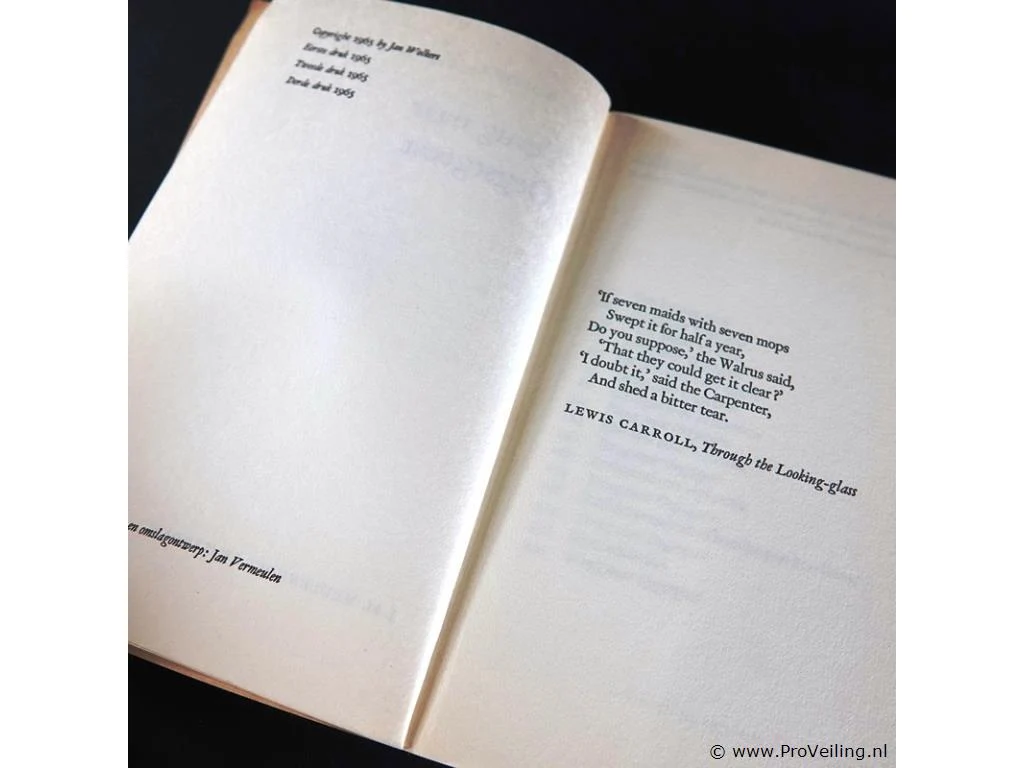 Copyright 1965 by Jan Wolkers
Eerste druk 1965
Tweede druk 1965
Derde druk 1965
en omslagontwerp: Jan Vermeulen
‘If seven maids with seven mops
Swept it for half a year,
Do you suppose,’ the Walrus said,
‘That they could get it clear?’
‘I doubt it,’ said the Carpenter,
And shed a bitter tear.
LEWIS CARROLL, Through the Looking-glass
© www.ProVeiling.nl